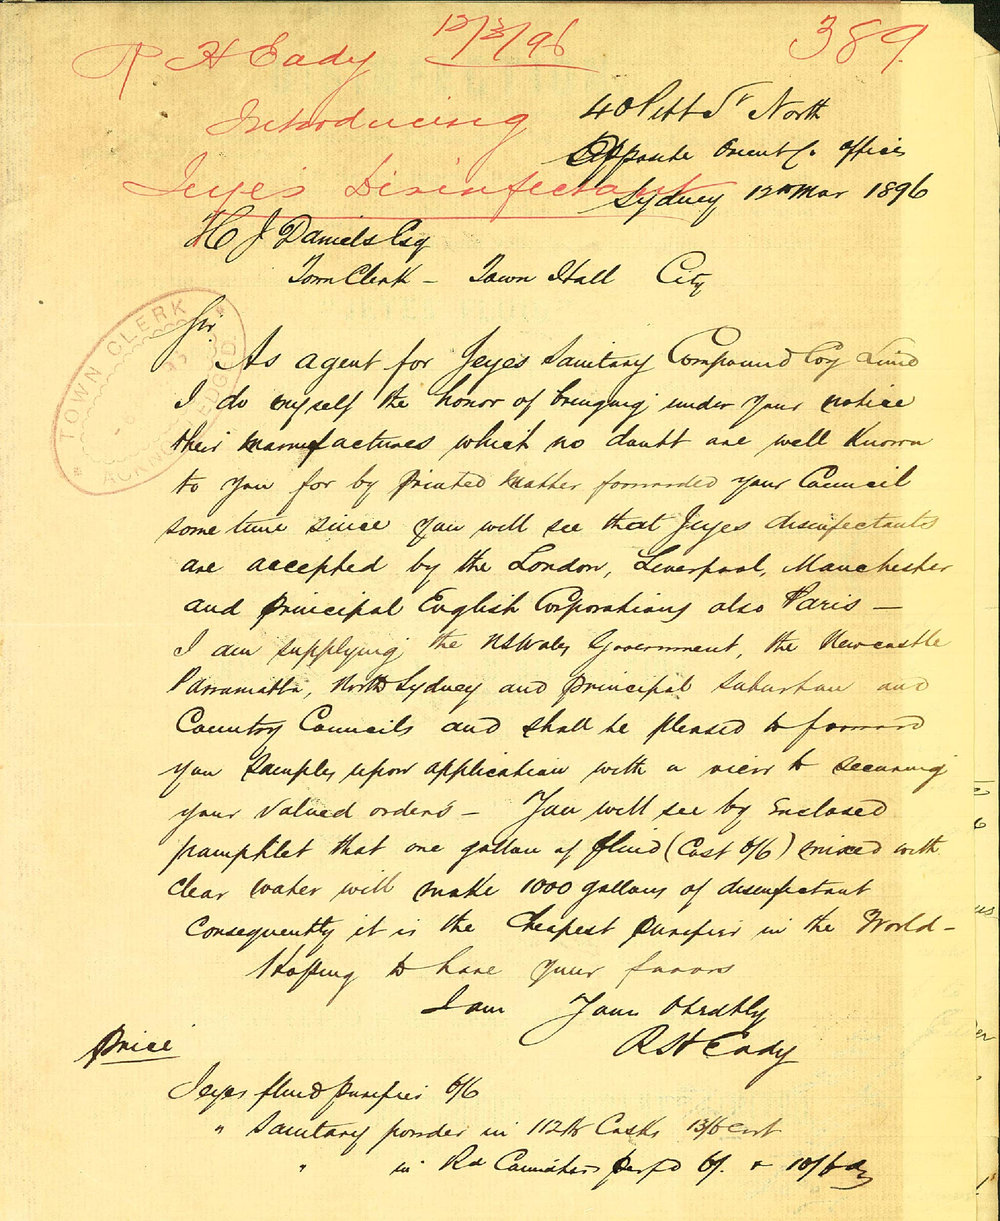 R H Eady 12/3/96 389
Introducing
Jeye's Disinfectant
40 Pitt St North
Opposite Orient Co. offices
Sydney 12th Mar 1896
H J Daniels Esq
Town Clerk - Town Hall City
TOWN CLERK
ACKNOWLEDGED
Sir
As agent for Jeyes Sanitary Compound Coy Limd
I do myself the honor of bringing under your notice
their manufactures which no doubt are well known
to you for by printed matter forwarded your Council
some time since you will see that Jeyes disinfectants
are accepted by the London, Liverpool, Manchester
and principal English Corporations also Paris —
I am supplying the NSWales Government, the Newcastle
Parramatta, North Sydney and principal suburban and
Country Councils and shall be pleased to forward
you samples upon application with a view to securing
your valued orders — You will see by enclosed
pamphlet that one gallon of fluid (Cost 6/6) mixed with
clear water will make 1000 gallons of disinfectant
Consequently it is the Cheapest purifier in the World —
Hoping to have your favors
I am Your Obedtly
R H Eady
Price
Jeyes fluid purifier 6/6
" Sanitary powder in 112 lb Casks 13/6 cwt
" in Rd Canisters perf'd 6/. & 10/6